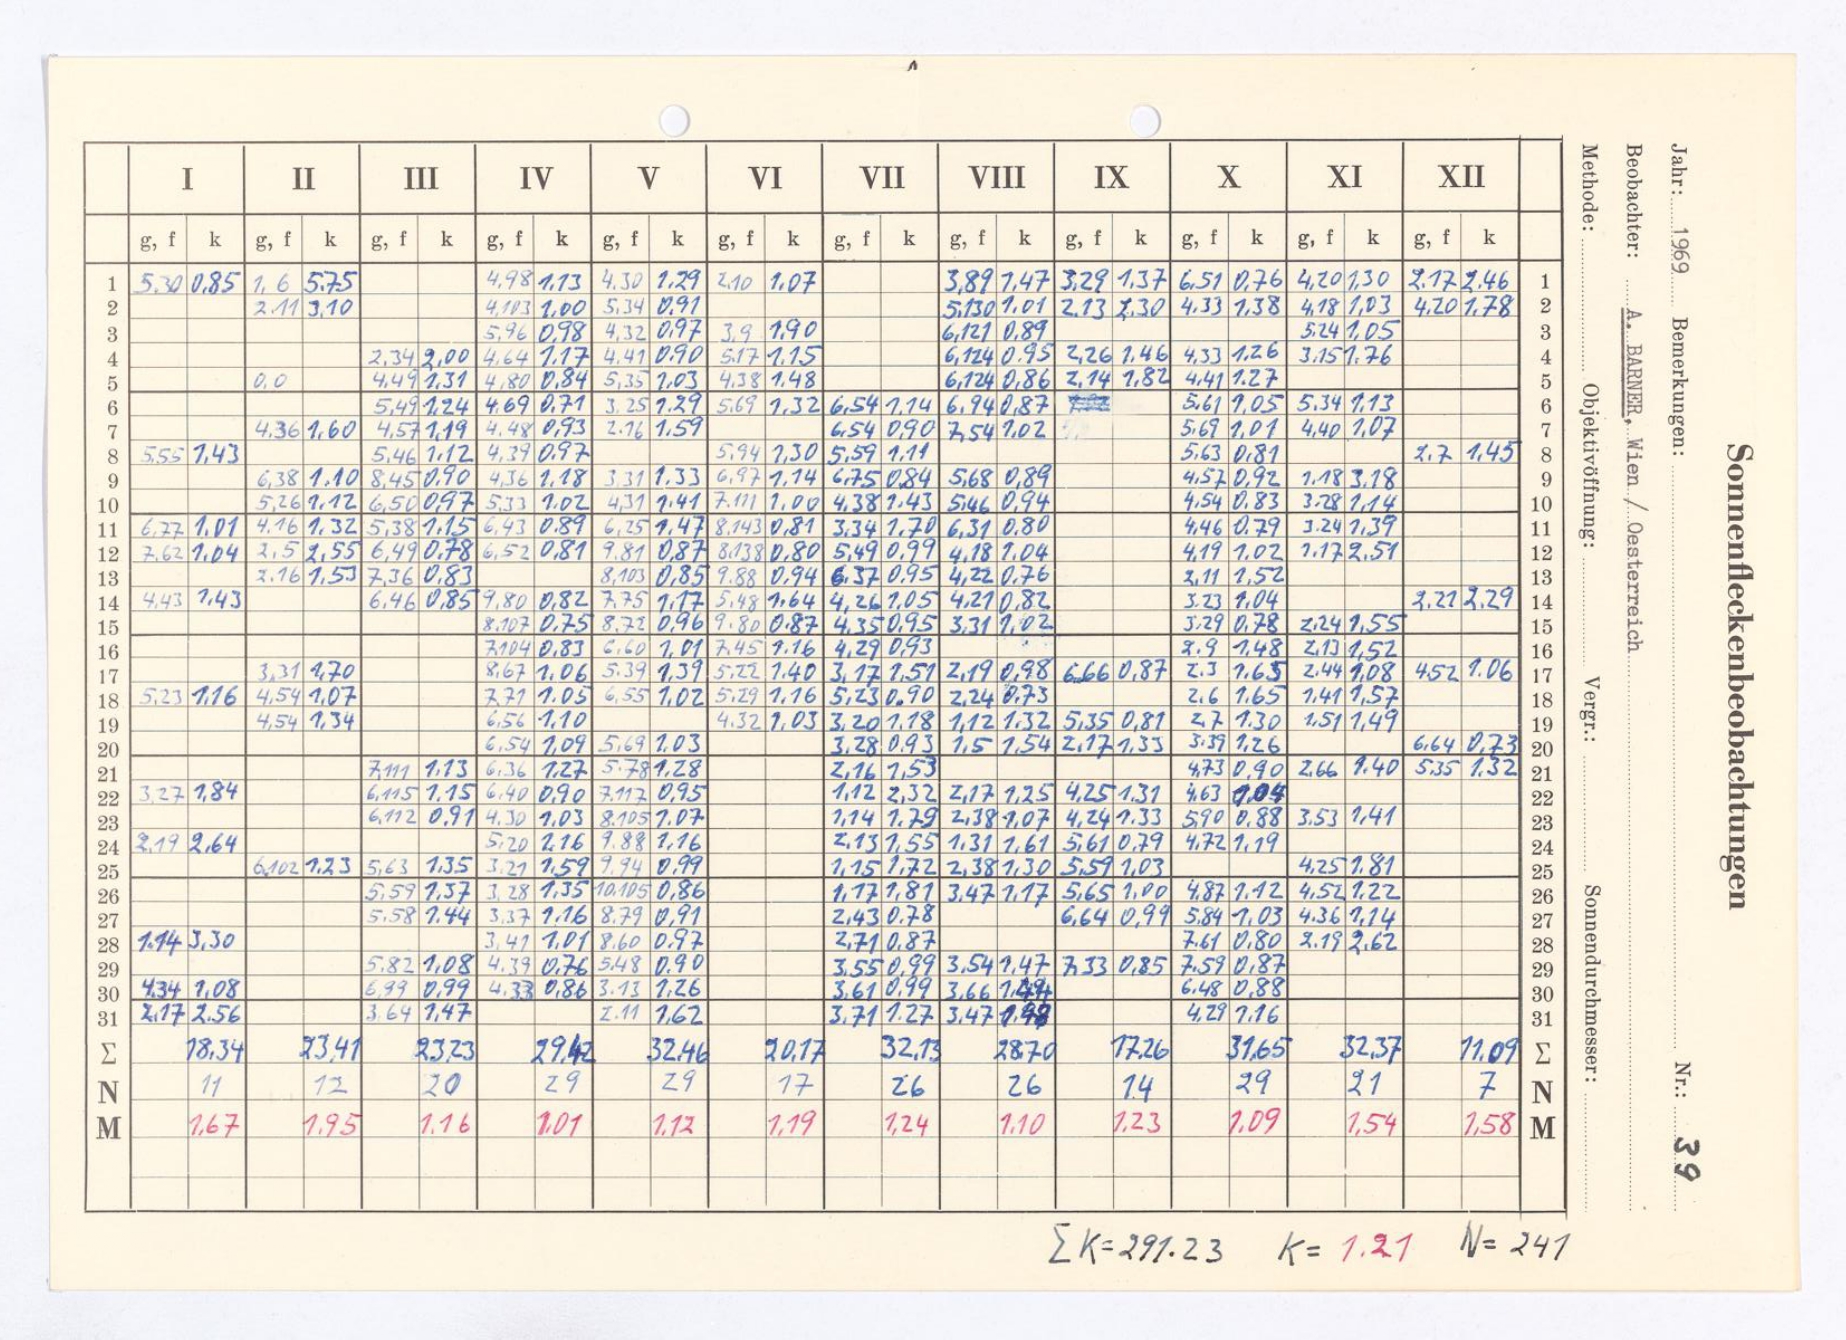 Sonnenfleckenbeobachtungen
Jahr: 1969 Bemerkungen: Nr.: 39
Beobachter: A. BARNER, Wien / Oesterreich
Methode: Objektivöffnung: Vergr.: Sonnendurchmesser:
I II III IV V VI VII VIII IX X XI XII
g, f k g, f k g, f k g, f k g, f k g, f k g, f k g, f k g, f k g, f k g, f k g, f k
1 5.30 0,85 1, 6 5.75 4,98 1.13 4.30 1.29 2.10 1,07 3,89 1,47 3,29 1,37 6,51 0,76 4,20 1,30 2.17 2.46 1
2 2.11 3,10 4,103 1,00 5,34 0,91 5,130 1.01 2.13 2,30 4.33 1,38 4,18 1,03 4,20 1,78 2
3 5,96 0,98 4,32 0,97 3,9 1,90 6,121 0,89 5.24 1,05 3
4 2,34 2,00 4.64 1,17 4.41 0,90 5.17 1,15 6,124 0.95 2,26 1,46 4,33 1,26 3.15 1.76 4
5 0,0 4,49 1,31 4,80 0,84 5,35 1,03 4.38 1,48 6,124 0,86 2,14 1,82 4,41 1.27 5
6 5,49 1,24 4.69 0,71 3.25 1.29 5.69 1,32 6,54 1,14 6,94 0,87 5.61 1,05 5.34 1,13 6
7 4.36 1,60 4,57 1,19 4,48 0,93 2.16 1.59 6,54 0,90 7,54 1.02 5.69 1,01 4,40 1,07 7
8 5.55 1,43 5.46 1.12 4,39 0,97 5.94 1,30 5,59 1.11 5.63 0,81 2.7 1,45 8
9 6,38 1.10 8,45 0,90 4,36 1.18 3.31 1.33 6,97 1,14 6,75 0,84 5.68 0,89 4.57 0,92 1.18 3.18 9
10 5,26 1.12 6,50 0,97 5,33 1.02 4,31 1.41 7.111 1.00 4,38 1.43 5.46 0,94 4.54 0,83 3.28 1,14 10
11 6,77 1,01 4.16 1.32 5,38 1.15 6,43 0,89 6,25 1.47 8.143 0,81 3.34 1.70 6,31 0.80 4.46 0,79 3.24 1,39 11
12 7.62 1,04 2,5 2,55 6,49 0,78 6,52 0,81 9.81 0,87 8.138 0,80 5,49 0,99 4,18 1.04 4,19 1,02 1.17 2.51 12
13 2.16 1,53 7,36 0,83 8,103 0,85 9.88 0,94 6.37 0,95 4,22 0,76 2,11 1,52 13
14 4,43 1,43 6,46 0,85 9,80 0,82 7.75 1,17 5,48 1,64 4,26 1,05 4.21 0,82 3.23 1,04 2,21 2,29 14
15 8.107 0,75 8,72 0,96 9.80 0.87 4,35 0,95 3,31 1,02 3.29 0,78 2.24 1,55 15
16 7.104 0,83 6.60 1,01 7,45 1.16 4,29 0,93 2.9 1,48 2,13 1,52 16
17 3,31 1,70 8,67 1.06 5.39 1,39 5,22 1.40 3,17 1.51 2,19 0,98 6,66 0,87 2.3 1.65 2.44 1,08 4,52 1.06 17
18 5,23 1,16 4,54 1,07 7,71 1.05 6,55 1.02 5,29 1,16 5,23 0.90 2,24 0,73 2.6 1,65 1,41 1,57 18
19 4,54 1,34 6,56 1,10 4.32 1,03 3,20 1,18 1,12 1.32 5,35 0,81 2,7 1.30 1.51 1,49 19
20 6,54 1,09 5,69 1,03 3,28 0,93 1,5 1,54 2,17 1,33 3.39 1,26 6,64 0,73 20
21 7,111 1.13 6,36 1,27 5.78 1,28 2,16 1,53 4,73 0,90 2.66 1.40 5.35 1.32 21
22 3,27 1,84 6,115 1.15 6.40 0,90 7.117 0,95 1,12 2,32 2,17 1,25 4.25 1.31 4.63 1,04 22
23 6,112 0,91 4.30 1.03 8.105 1.07 1,14 1.79 2,38 1,07 4,24 1.33 5.90 0.88 3.53 1,41 23
24 2.19 2,64 5,20 1.16 9.88 1,16 2.13 1,55 1.31 1,61 5,61 0,79 4,72 1,19 24
25 6,102 1.23 5,63 1.35 3.21 1,59 7.94 0,99 1,15 1,72 2,38 1,30 5,59 1,03 4,25 1.81 25
26 5.59 1.37 3,28 1.35 10.105 0,86 1,17 1,81 3.47 1.17 5,65 1,00 4.87 1.12 4,52 1.22 26
27 5.58 1.44 3,37 1.16 8.79 0,91 2,43 0.78 6,64 0,99 5.84 1.03 4.36 1,14 27
28 1.14 3,30 3,41 1,01 8.60 0.97 2,71 0,87 7.61 0,80 2.19 2,62 28
29 5.82 1,08 4.39 0,76 5.48 0.90 3.55 0,99 3,54 1,47 7,33 0,85 7.59 0,87 29
30 4.34 1,08 6,99 0,99 4.33 0,86 3.13 1,26 3.61 0,99 3,66 6.48 0,88 30
31 2.17 2.56 3.64 1,47 2.11 1,62 3,71 1.27 3,47 4,29 1.16 31
Σ 18,34 23,41 23,23 29,42 32.46 20,17 32,13 28.70 17.26 31,65 32,37 11,09 Σ
N 11 12 20 29 29 17 26 26 14 29 21 7 N
M 1,67 1,95 1.16 1,01 1.12 1,19 1,24 1.10 1.23 1.09 1,54 1,58 M
ΣK=291.23 K= 1.21 N= 241